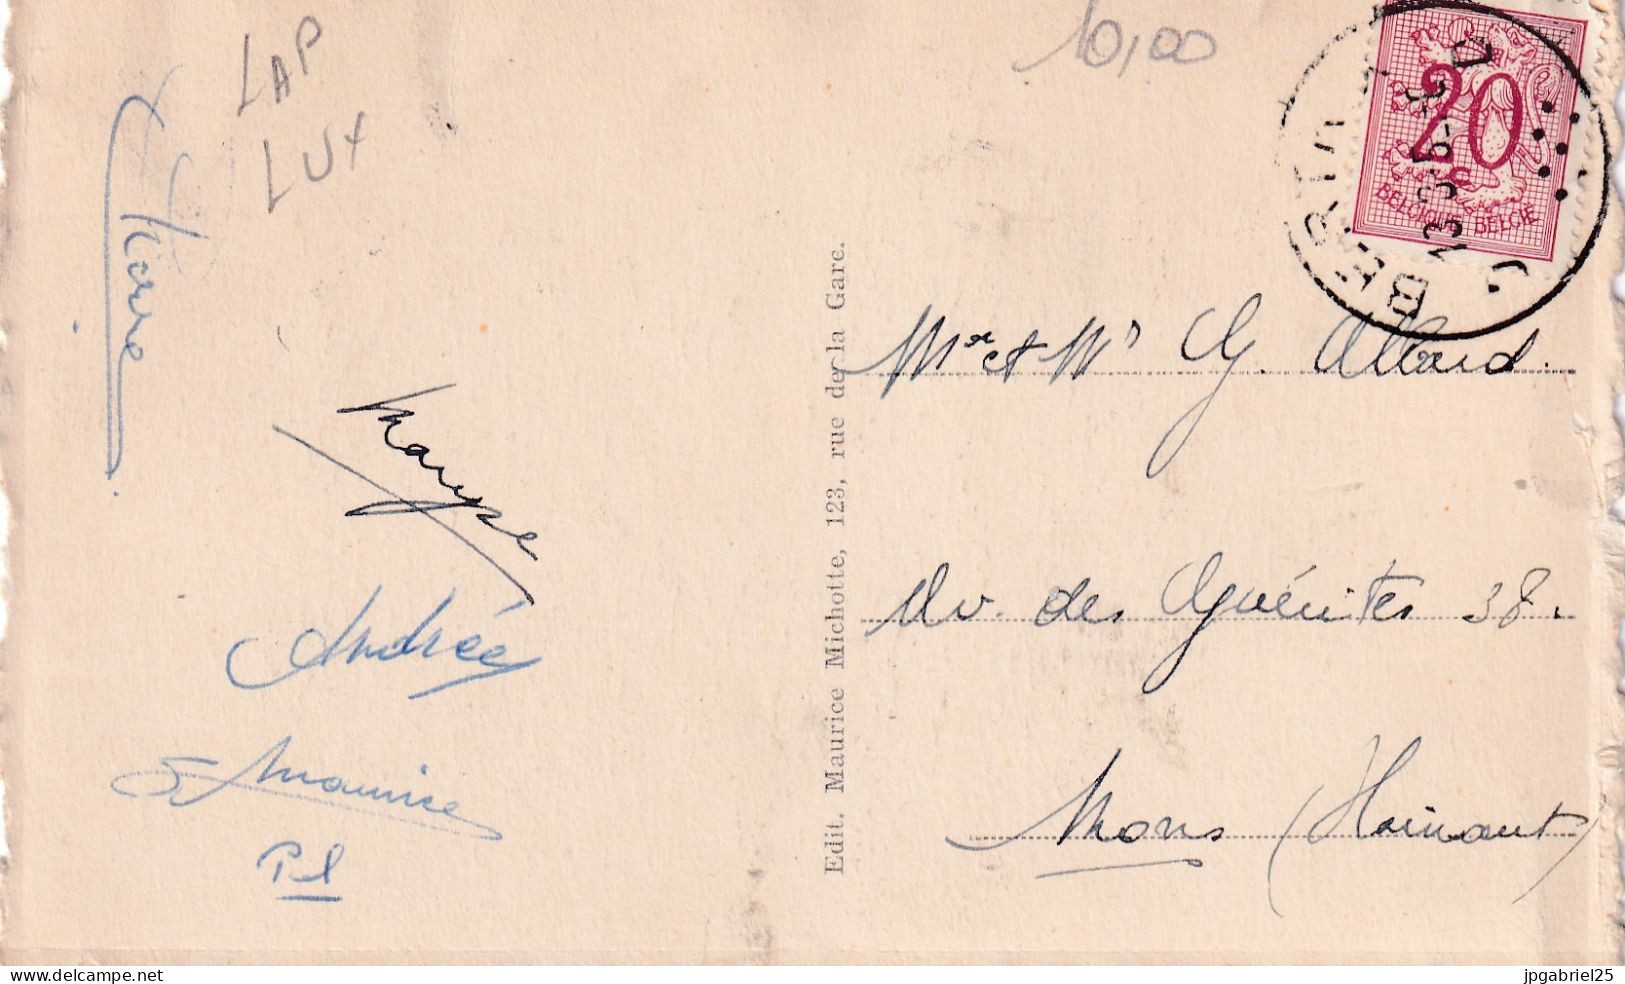 LAP
LUX
10,00
20
c
BELGIQUE BELGIË
BERTRIX
Pierre
Andrée
Maurice
Edit. Maurice Michotte, 123, rue de la Gare.
Mr et Me G. Allard.
Av. des Guérites 38.
Mons (Hainaut)
delcampe.net
jpgabriel25